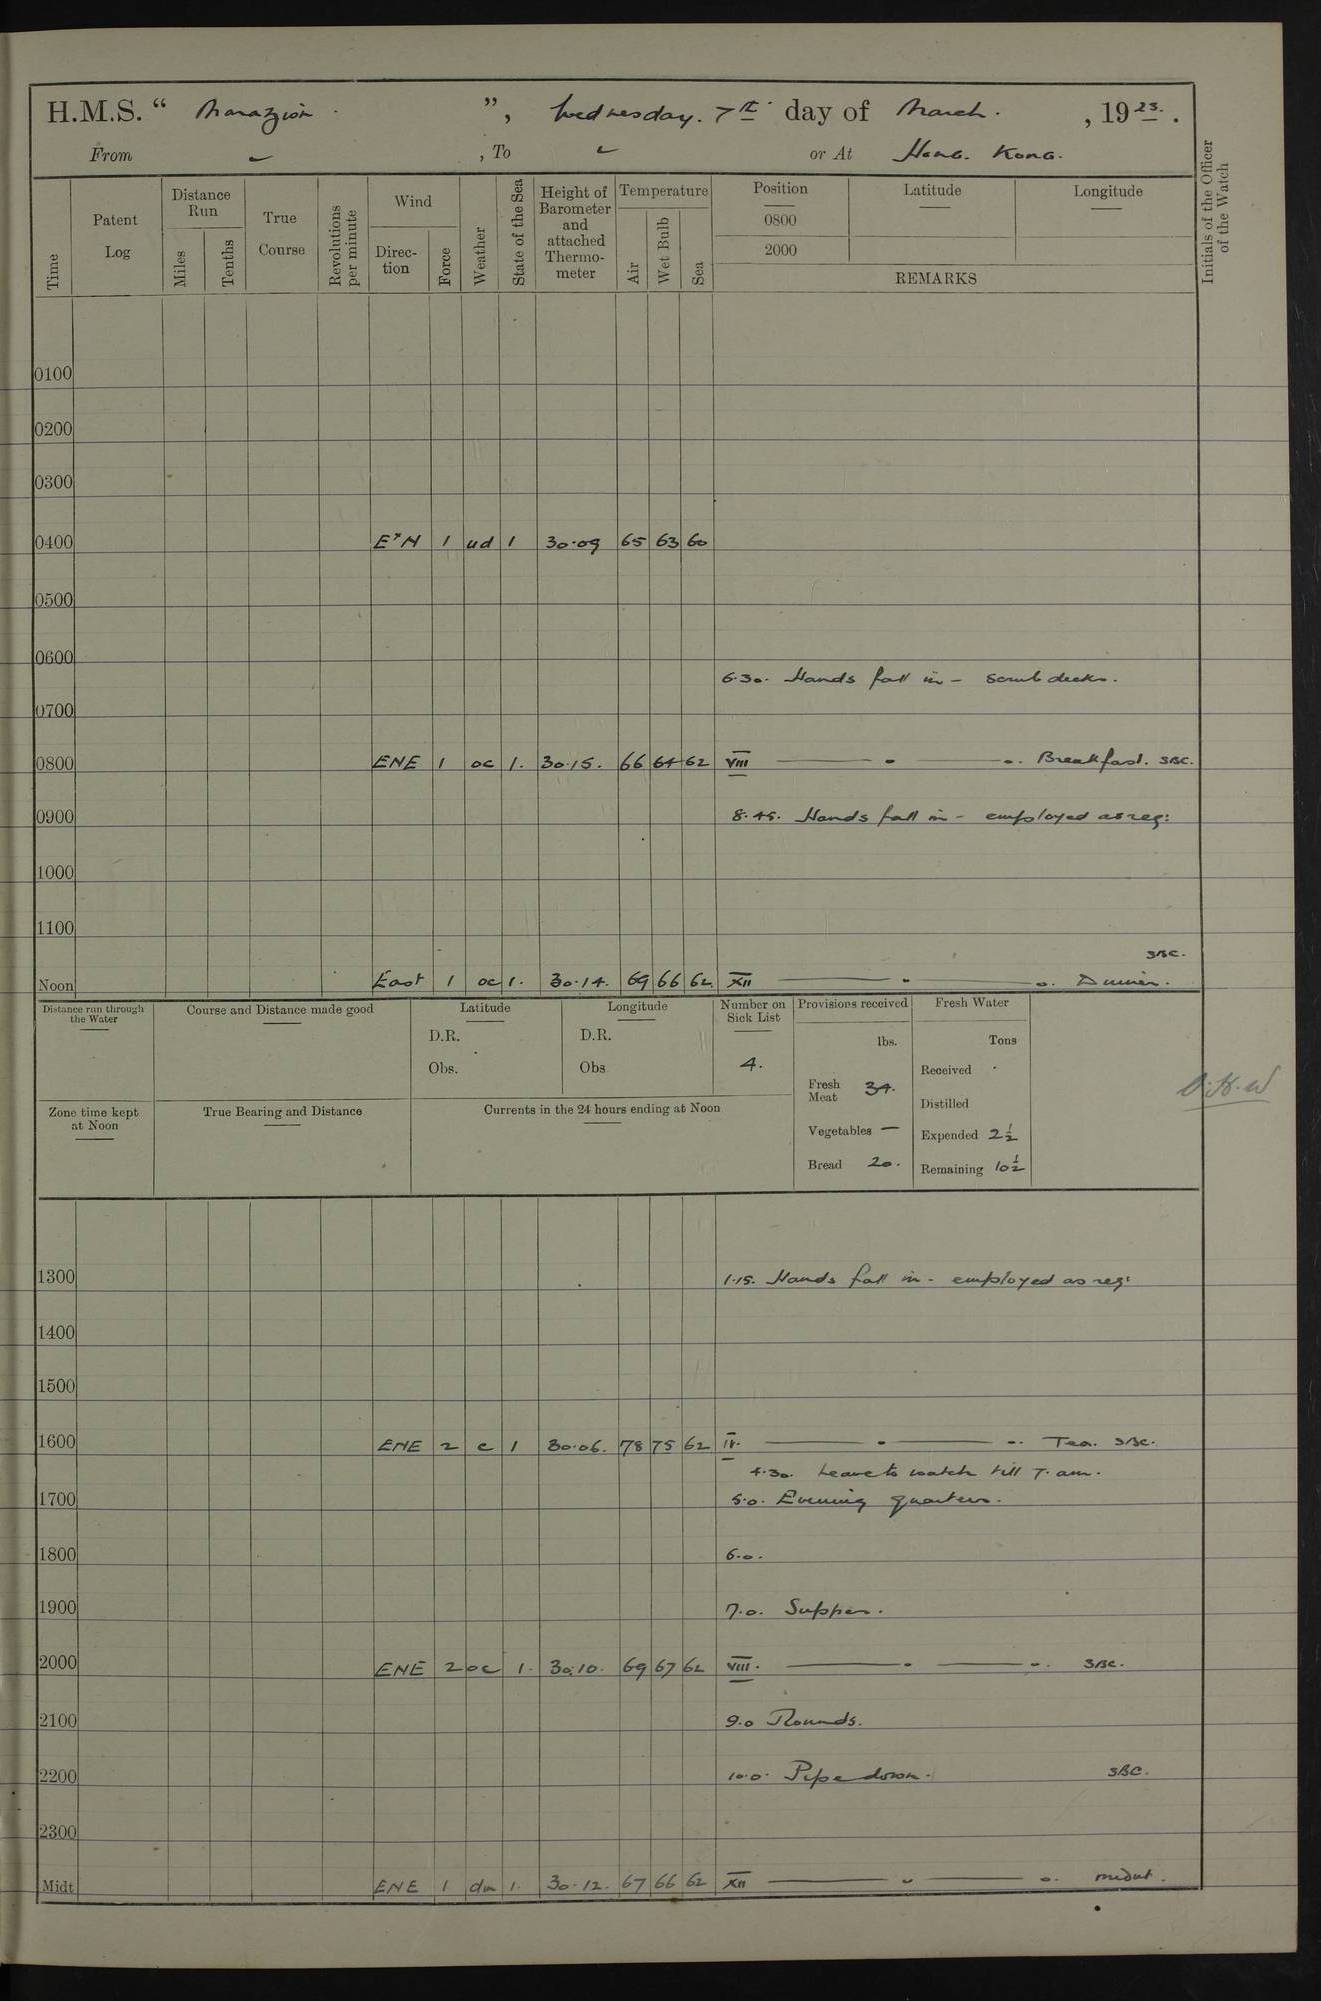 H.M.S. “ Marazion ”, Wednesday. 7th day of March. , 1923.
From , To or At Hong. Kong.
Time
Patent Log
Distance Run
Miles
Tenths
True Course
Revolutions per minute
Wind
Direction
Force
Weather
State of the Sea
Height of Barometer and attached Thermometer
Temperature
Air
Wet Bulb
Sea
Position
Latitude
Longitude
0800
2000
REMARKS
Initials of the Officer of the Watch
0100
0200
0300
0400 ExN 1 ud 1 30.09 65 63 60
0500
0600
6.30. Hands fall in - scrub decks.
0700
0800 ENE 1 oc 1. 30.15. 66 64 62 VIII Breakfast. SBC.
0900 8.45. Hands fall in - employed as req:
1000
1100
SBC.
Noon East 1 oc 1. 30.14. 69 66 62. XII Dinner.
Distance run through the Water
Course and Distance made good
Latitude
D.R.
Obs.
Longitude
D.R.
Obs
Number on Sick List
4.
Provisions received
lbs.
Fresh Meat 34.
Vegetables —
Bread 20.
Fresh Water
Tons
Received
Distilled
Expended 2½
Remaining 10½
Zone time kept at Noon
True Bearing and Distance
Currents in the 24 hours ending at Noon
1300 1.15. Hands fall in - employed as req:
1400
1500
1600 ENE 2 c 1 30.06. 78 75 62 IV. Tea. SBC.
4.30. Leave to watch till 7. am.
1700 5.0. Evening quarters.
1800 6.0.
1900 7.0. Supper.
2000 ENE 2 oc 1. 30.10. 69 67 62 VIII. SBC.
2100 9.0 Rounds.
2200 10.0. Pipe down. SBC.
2300
Midt ENE 1 dm 1. 30.12. 67 66 62 XII midnt.